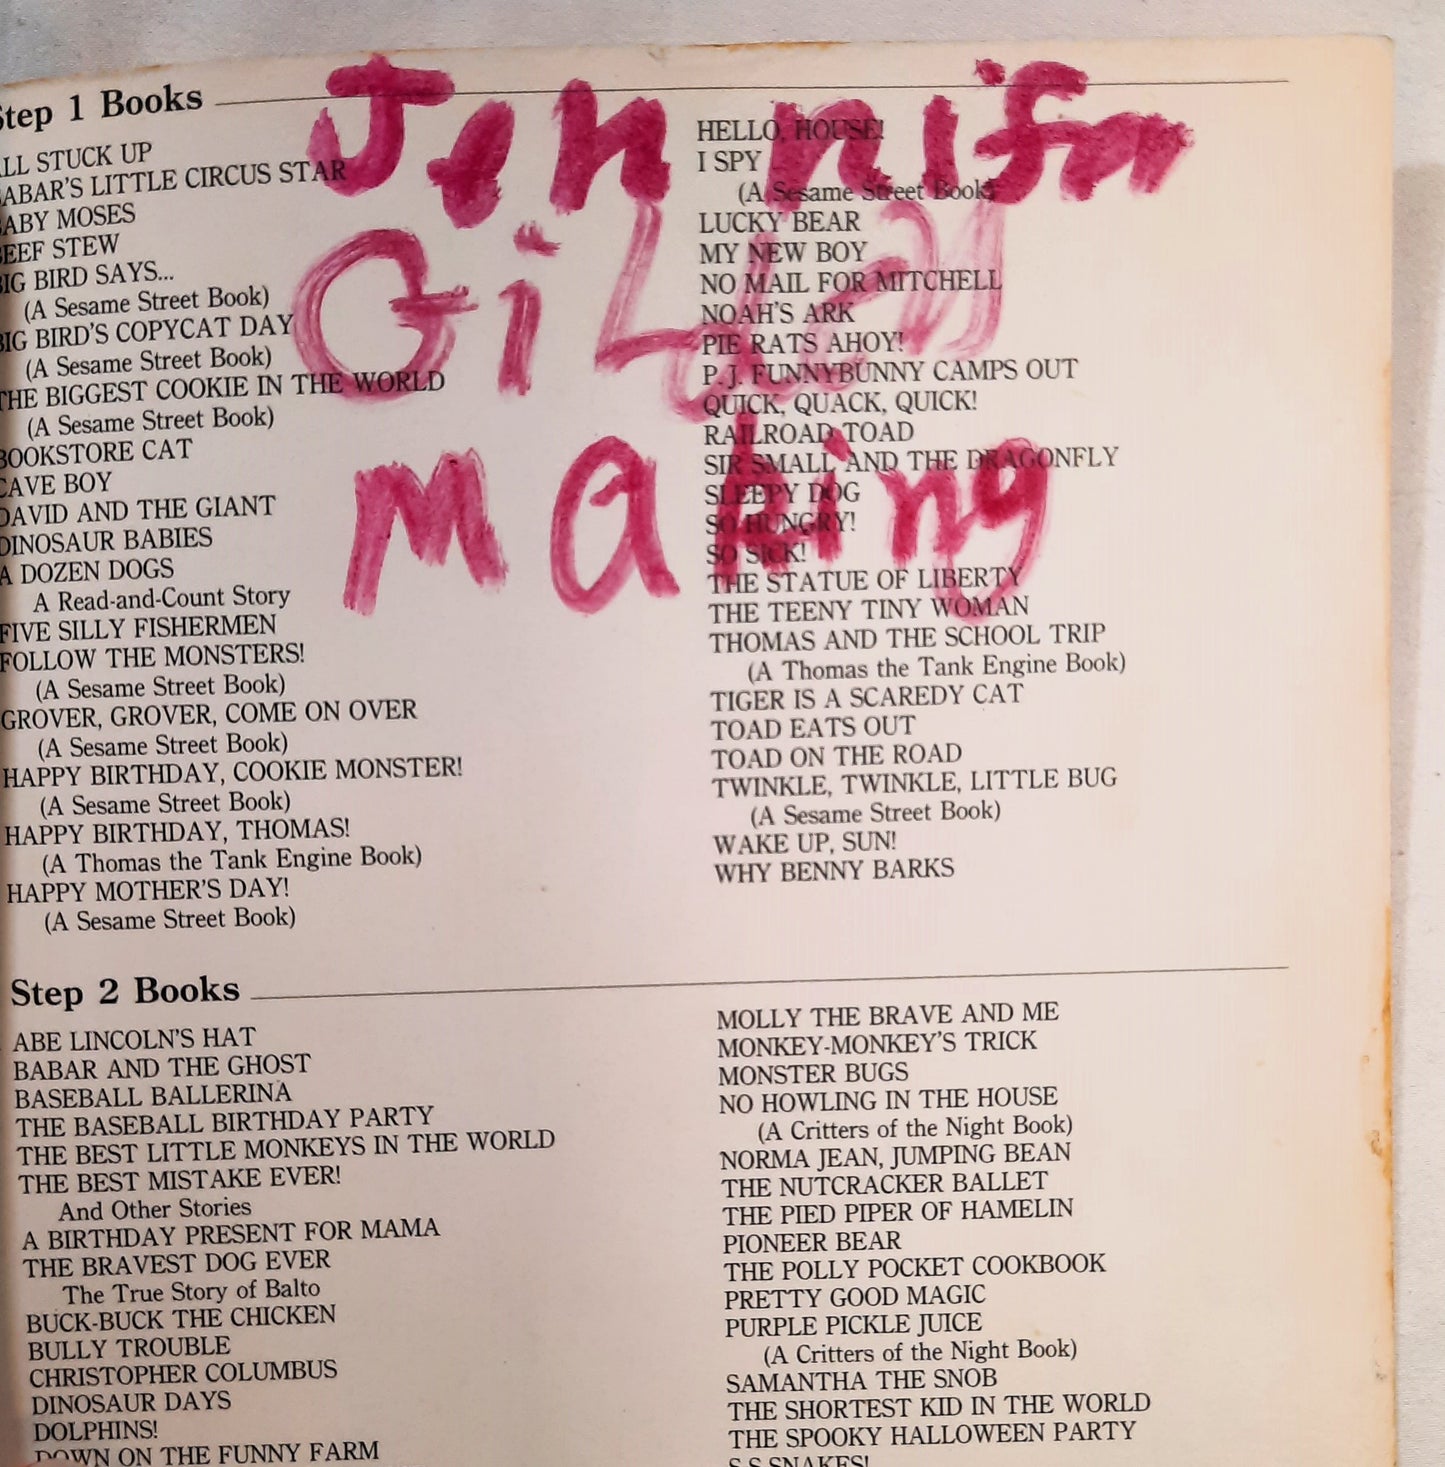 Step 1 Books
ALL STUCK UP
BABAR'S LITTLE CIRCUS STAR
BABY MOSES
BEEF STEW
BIG BIRD SAYS...
(A Sesame Street Book)
BIG BIRD'S COPYCAT DAY
(A Sesame Street Book)
THE BIGGEST COOKIE IN THE WORLD
(A Sesame Street Book)
BOOKSTORE CAT
CAVE BOY
DAVID AND THE GIANT
DINOSAUR BABIES
A DOZEN DOGS
A Read-and-Count Story
FIVE SILLY FISHERMEN
FOLLOW THE MONSTERS!
(A Sesame Street Book)
GROVER, GROVER, COME ON OVER
(A Sesame Street Book)
HAPPY BIRTHDAY, COOKIE MONSTER!
(A Sesame Street Book)
HAPPY BIRTHDAY, THOMAS!
(A Thomas the Tank Engine Book)
HAPPY MOTHER'S DAY!
(A Sesame Street Book)
HELLO, HOUSE!
I SPY
(A Sesame Street Book)
LUCKY BEAR
MY NEW BOY
NO MAIL FOR MITCHELL
NOAH'S ARK
PIE RATS AHOY!
P. J. FUNNYBUNNY CAMPS OUT
QUICK, QUACK, QUICK!
RAILROAD TOAD
SIR SMALL AND THE DRAGONFLY
SLEEPY DOG
SO HUNGRY!
SO SICK!
THE STATUE OF LIBERTY
THE TEENY TINY WOMAN
THOMAS AND THE SCHOOL TRIP
(A Thomas the Tank Engine Book)
TIGER IS A SCAREDY CAT
TOAD EATS OUT
TOAD ON THE ROAD
TWINKLE, TWINKLE, LITTLE BUG
(A Sesame Street Book)
WAKE UP, SUN!
WHY BENNY BARKS
Jennifer
making
Step 2 Books
ABE LINCOLN'S HAT
BABAR AND THE GHOST
BASEBALL BALLERINA
THE BASEBALL BIRTHDAY PARTY
THE BEST LITTLE MONKEYS IN THE WORLD
THE BEST MISTAKE EVER!
And Other Stories
A BIRTHDAY PRESENT FOR MAMA
THE BRAVEST DOG EVER
The True Story of Balto
BUCK-BUCK THE CHICKEN
BULLY TROUBLE
CHRISTOPHER COLUMBUS
DINOSAUR DAYS
DOLPHINS!
DOWN ON THE FUNNY FARM
MOLLY THE BRAVE AND ME
MONKEY-MONKEY'S TRICK
MONSTER BUGS
NO HOWLING IN THE HOUSE
(A Critters of the Night Book)
NORMA JEAN, JUMPING BEAN
THE NUTCRACKER BALLET
THE PIED PIPER OF HAMELIN
PIONEER BEAR
THE POLLY POCKET COOKBOOK
PRETTY GOOD MAGIC
PURPLE PICKLE JUICE
(A Critters of the Night Book)
SAMANTHA THE SNOB
THE SHORTEST KID IN THE WORLD
THE SPOOKY HALLOWEEN PARTY
S-S-SNAKES!